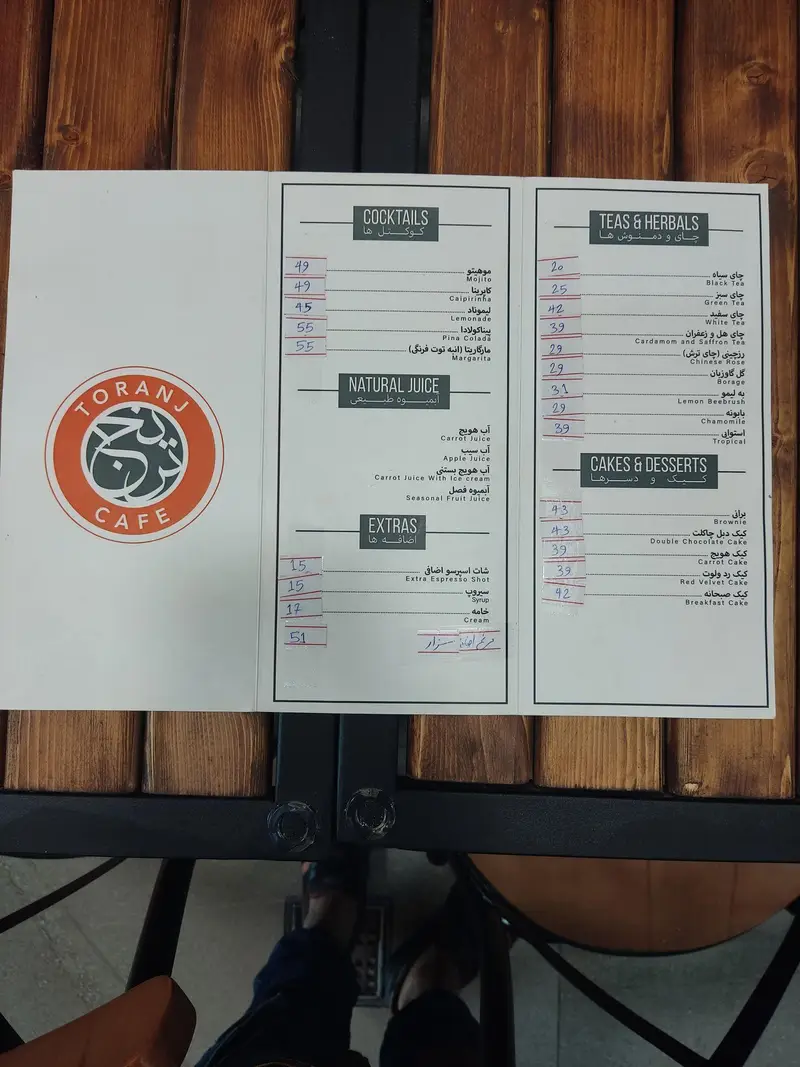 TORANJ
ترنج
CAFE
COCKTAILS
کوکتل ها
49 موهیتو
Mojito
49 کایرینا
Caipirinha
45 لیموناد
Lemonade
55 پیناکولادا
Pina Colada
55 مارگاریتا (انبه توت فرنگی)
Margarita
NATURAL JUICE
آبمیوه طبیعی
آب هویج
Carrot Juice
آب سیب
Apple Juice
آب هویج بستنی
Carrot Juice With Ice cream
آبمیوه فصل
Seasonal Fruit Juice
EXTRAS
اضافه ها
15 شات اسپرسو اضافی
Extra Espresso Shot
15 سیروپ
Syrup
17 خامه
Cream
51 مرغ اضافه سزار
TEAS & HERBALS
چای و دمنوش ها
20 چای سیاه
Black Tea
25 چای سبز
Green Tea
42 چای سفید
White Tea
39 چای هل و زعفران
Cardamom and Saffron Tea
29 رزچینی (چای ترش)
Chinese Rose
29 گل گاوزبان
Borage
31 به لیمو
Lemon Beebrush
29 بابونه
Chamomile
39 استوایی
Tropical
CAKES & DESSERTS
کیک و دسرها
43 برانی
Brownie
43 کیک دبل چاکلت
Double Chocolate Cake
39 کیک هویج
Carrot Cake
39 کیک رد ولوت
Red Velvet Cake
42 کیک صبحانه
Breakfast Cake